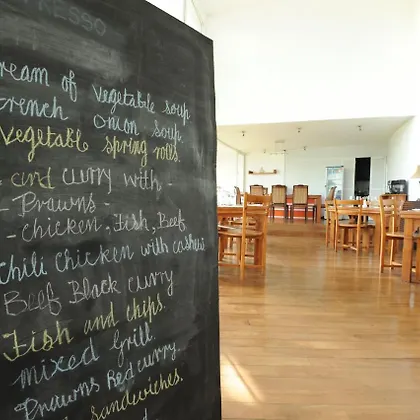 PRESSO
ream of vegetable soup
french onion soup.
Vegetable spring rolls.
and curry with -
- Prawns -
- chicken, Fish, Beef
Chili Chicken with cashew
Beef Black curry
Fish and chips.
mixed Grill.
Prawns Red curry
Sandwiches.